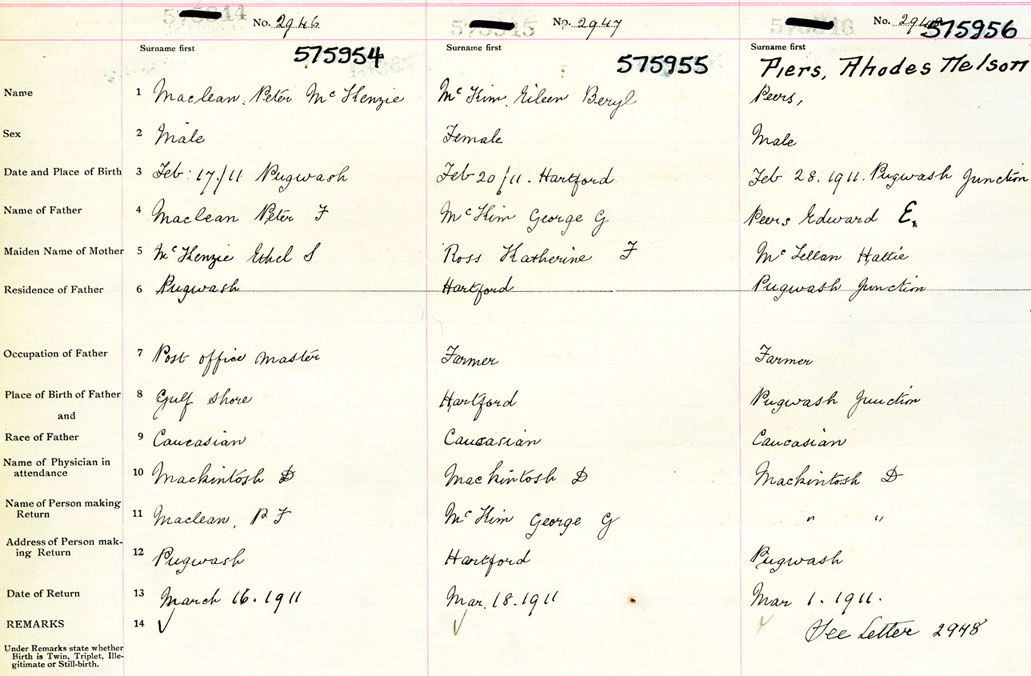 No. 2946 No. 2947 No.
575954 575955 575956
Surname first Surname first Surname first
Piers, Rhodes Nelson
Name 1 Maclean, Peter McKenzie McKim, Eileen Beryl Peers,
Sex 2 Male Female Male
Date and Place of Birth 3 Feb. 17/11 Pugwash Feb 20/11. Hartford Feb 28. 1911. Pugwash Junction
Name of Father 4 Maclean Peter F McKim George G Peers Edward E.
Maiden Name of Mother 5 McKenzie Ethel S Ross Katherine F McLellan Hattie
Residence of Father 6 Pugwash Hartford Pugwash Junction
Occupation of Father 7 Post office Master Farmer Farmer
Place of Birth of Father 8 Gulf Shore Hartford Pugwash Junction
and
Race of Father 9 Caucasian Caucasian Caucasian
Name of Physician in
attendance 10 Mackintosh D Mackintosh D Mackintosh D
Name of Person making
Return 11 Maclean, P F McKim George G " "
Address of Person mak-
ing Return 12 Pugwash Hartford Pugwash
Date of Return 13 March 16. 1911 Mar. 18. 1911 Mar 1. 1911.
REMARKS 14 See Letter 2948
Under Remarks state whether
Birth is Twin, Triplet, Ille-
gitimate or Still-birth.